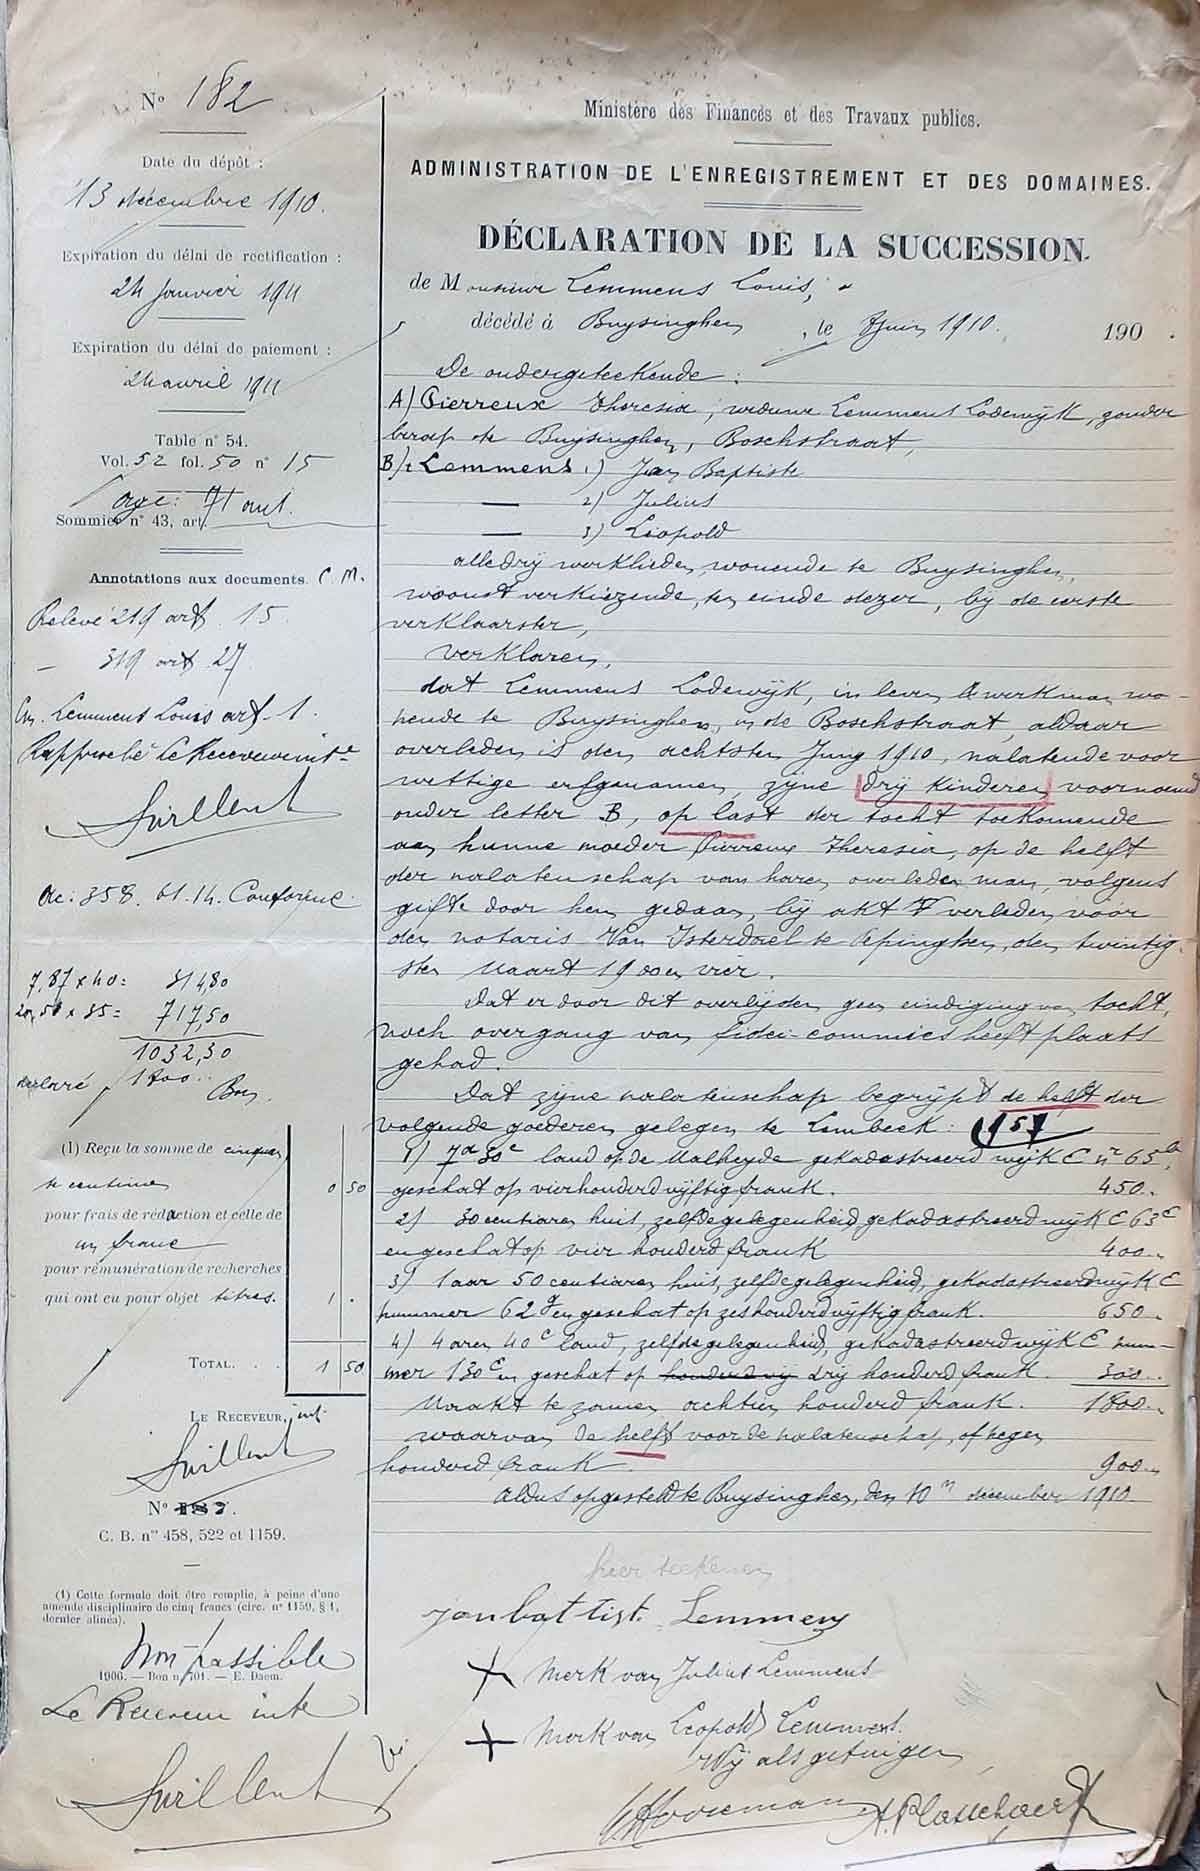 N° 182
Date du dépôt :
13 décembre 1910.
Expiration du délai de rectification :
24 Janvier 1911
Expiration du délai de paiement :
24 avril 1911
Table n° 54.
Vol. 52 fol. 50 n° 15
age: 71 ans.
Sommier n° 43, art.
Annotations aux documents. C. M.
Relevé 219 art. 15
— 319 art 27
Lemmens Louis art. 1.
Rapproché Le Receveur int
358. 61.14. Conforme
7,87 x 40 = 314,80
20,50 x 35 = 717,50
1032,30
déclaré 1800
Bon
(1) Reçu la somme de cinquan
te centimes 0 50
pour frais de rédaction et celle de
un franc
pour rémunération de recherches
qui ont eu pour objet titres. 1 .
TOTAL. . . 1 50
LE RECEVEUR, int
N° 182.
C. B. nos 458, 522 et 1159.
(1) Cette formule doit être remplie, à peine d'une
amende disciplinaire de cinq francs (circ. n° 1159, § 1,
dernier alinéa).
Non passible
1906. — Bon n° 701. — E. Daem.
Le Receveur int
Ministère des Finances et des Travaux publics.
ADMINISTRATION DE L'ENREGISTREMENT ET DES DOMAINES.
DÉCLARATION DE LA SUCCESSION.
de Monsieur Lemmens Louis,
décédé à Buysinghen, le 8 Juin 1910. 190 .
De ondergeteekende :
A) Pierreux Theresia, weduwe Lemmens Lodewijk, zonder
beroep te Buysinghen, Boschstraat,
B) Lemmens 1) Jan Baptiste
— 2) Julius
— 3) Leopold
alledrij werklieden, wonende te Buysinghen,
woonst verkiezende, ten einde dezer, bij de eerste
verklaarster,
verklaren,
dat Lemmens Lodewijk, in leven werkman wo-
nende te Buysinghen, in de Boschstraat, aldaar
overleden is den achtsten Juny 1910, nalatende voor
wettige erfgenamen, zijne drij kinderen voornoemd
onder letter B, op last der tocht toekomende
aan hunne moeder Pierreux Theresia, op de helft
der nalatenschap van haren overleden man, volgens
gifte door hem gedaan, bij akt verleden voor
den notaris Van Isterdael te Pepinghen, den twintig-
sten Maart 1900 en vier.
Dat er door dit overlijden geen eindiging van tocht,
noch overgang van fidei-commies heeft plaats
gehad.
Dat zijne nalatenschap begrijpt de helft der
volgende goederen gelegen te Lembeck : 957
1) 7a 30c land op de Malheyde gekadastreerd wijk C nr 65
geschat op vierhonderd vijftig frank. 450.
2) 30 centiaren huis, zelfde gelegenheid, gekadastreerd wijk C 63c
en geschat op vier honderd frank 400
3) 1 aar 50 centiaren huis, zelfde gelegenheid, gekadastreerd wijk C
nummer 62 en geschat op zeshonderd vijftig frank. 650.
4) 4 aren 40c land, zelfde gelegenheid, gekadastreerd wijk C num-
mer 130c en geschat op drij honderd frank. 300
Maakt te zamen achttien honderd frank. 1800.
waarvan de helft voor de nalatenschap, of negen
honderd frank. 900
Aldus opgesteld te Buysinghen, den 10n december 1910.
hier teekenen
jan battist. Lemmens
+ Merk van Julius Lemmens
+ Merk van Leopold Lemmens.
Wij als getuigen
A. Plasschaert